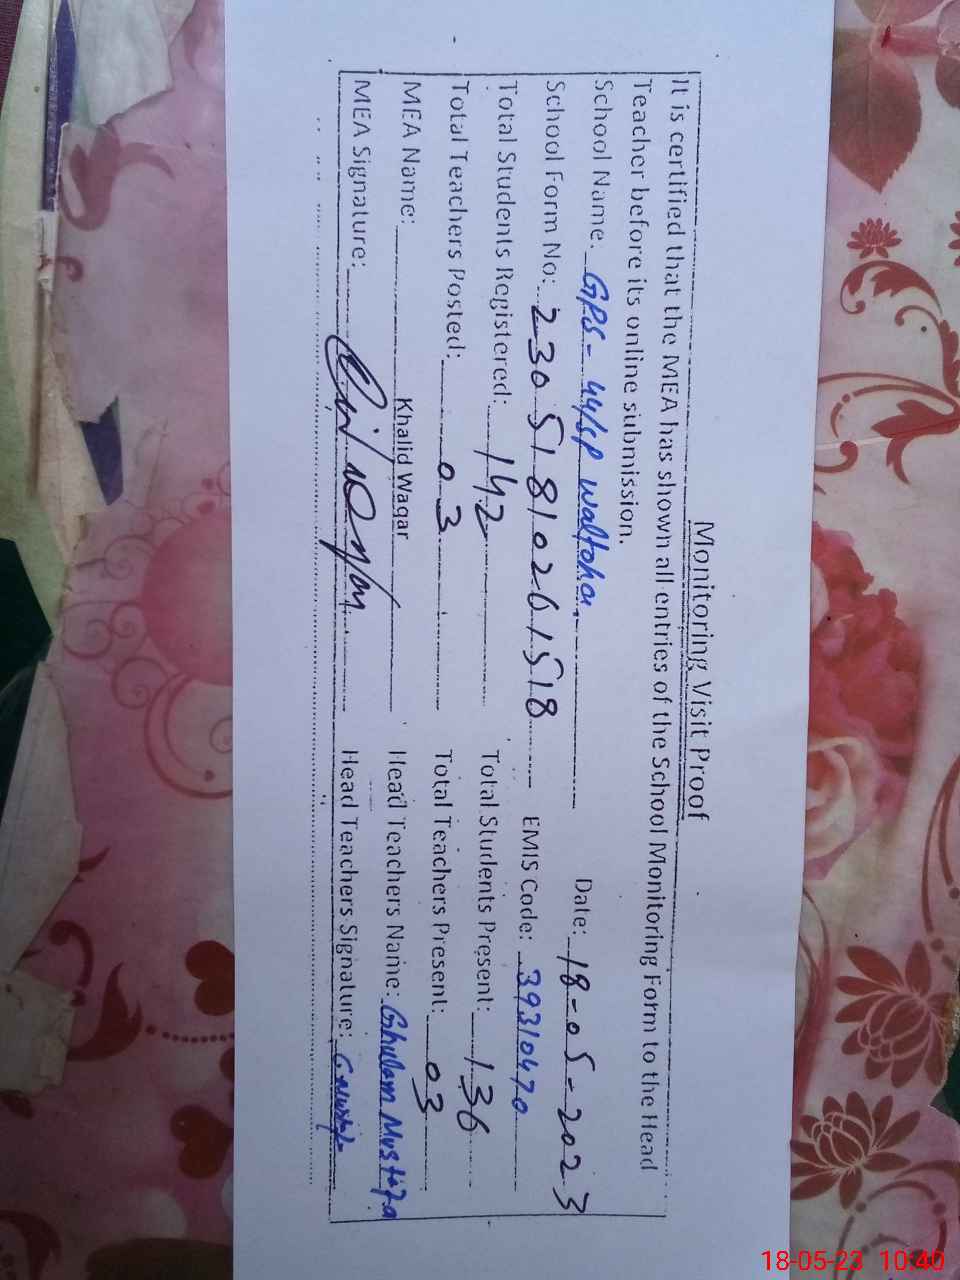 Monitoring Visit Proof
It is certified that the MEA has shown all entries of the School Monitoring Form to the Head
Teacher before its online submission.
School Name: GPS - 44/SP Waltoha. Date: 18-05-2023
School Form No: 23051810261518 EMIS Code: 39310470
Total Students Registered: 142 Total Students Present: 136
Total Teachers Posted: 03 Total Teachers Present: 03
MEA Name: Khalid Waqar Head Teachers Name: Ghulam Mustafa
MEA Signature: Head Teachers Signature: G Mustafa
18-05-23 10:40